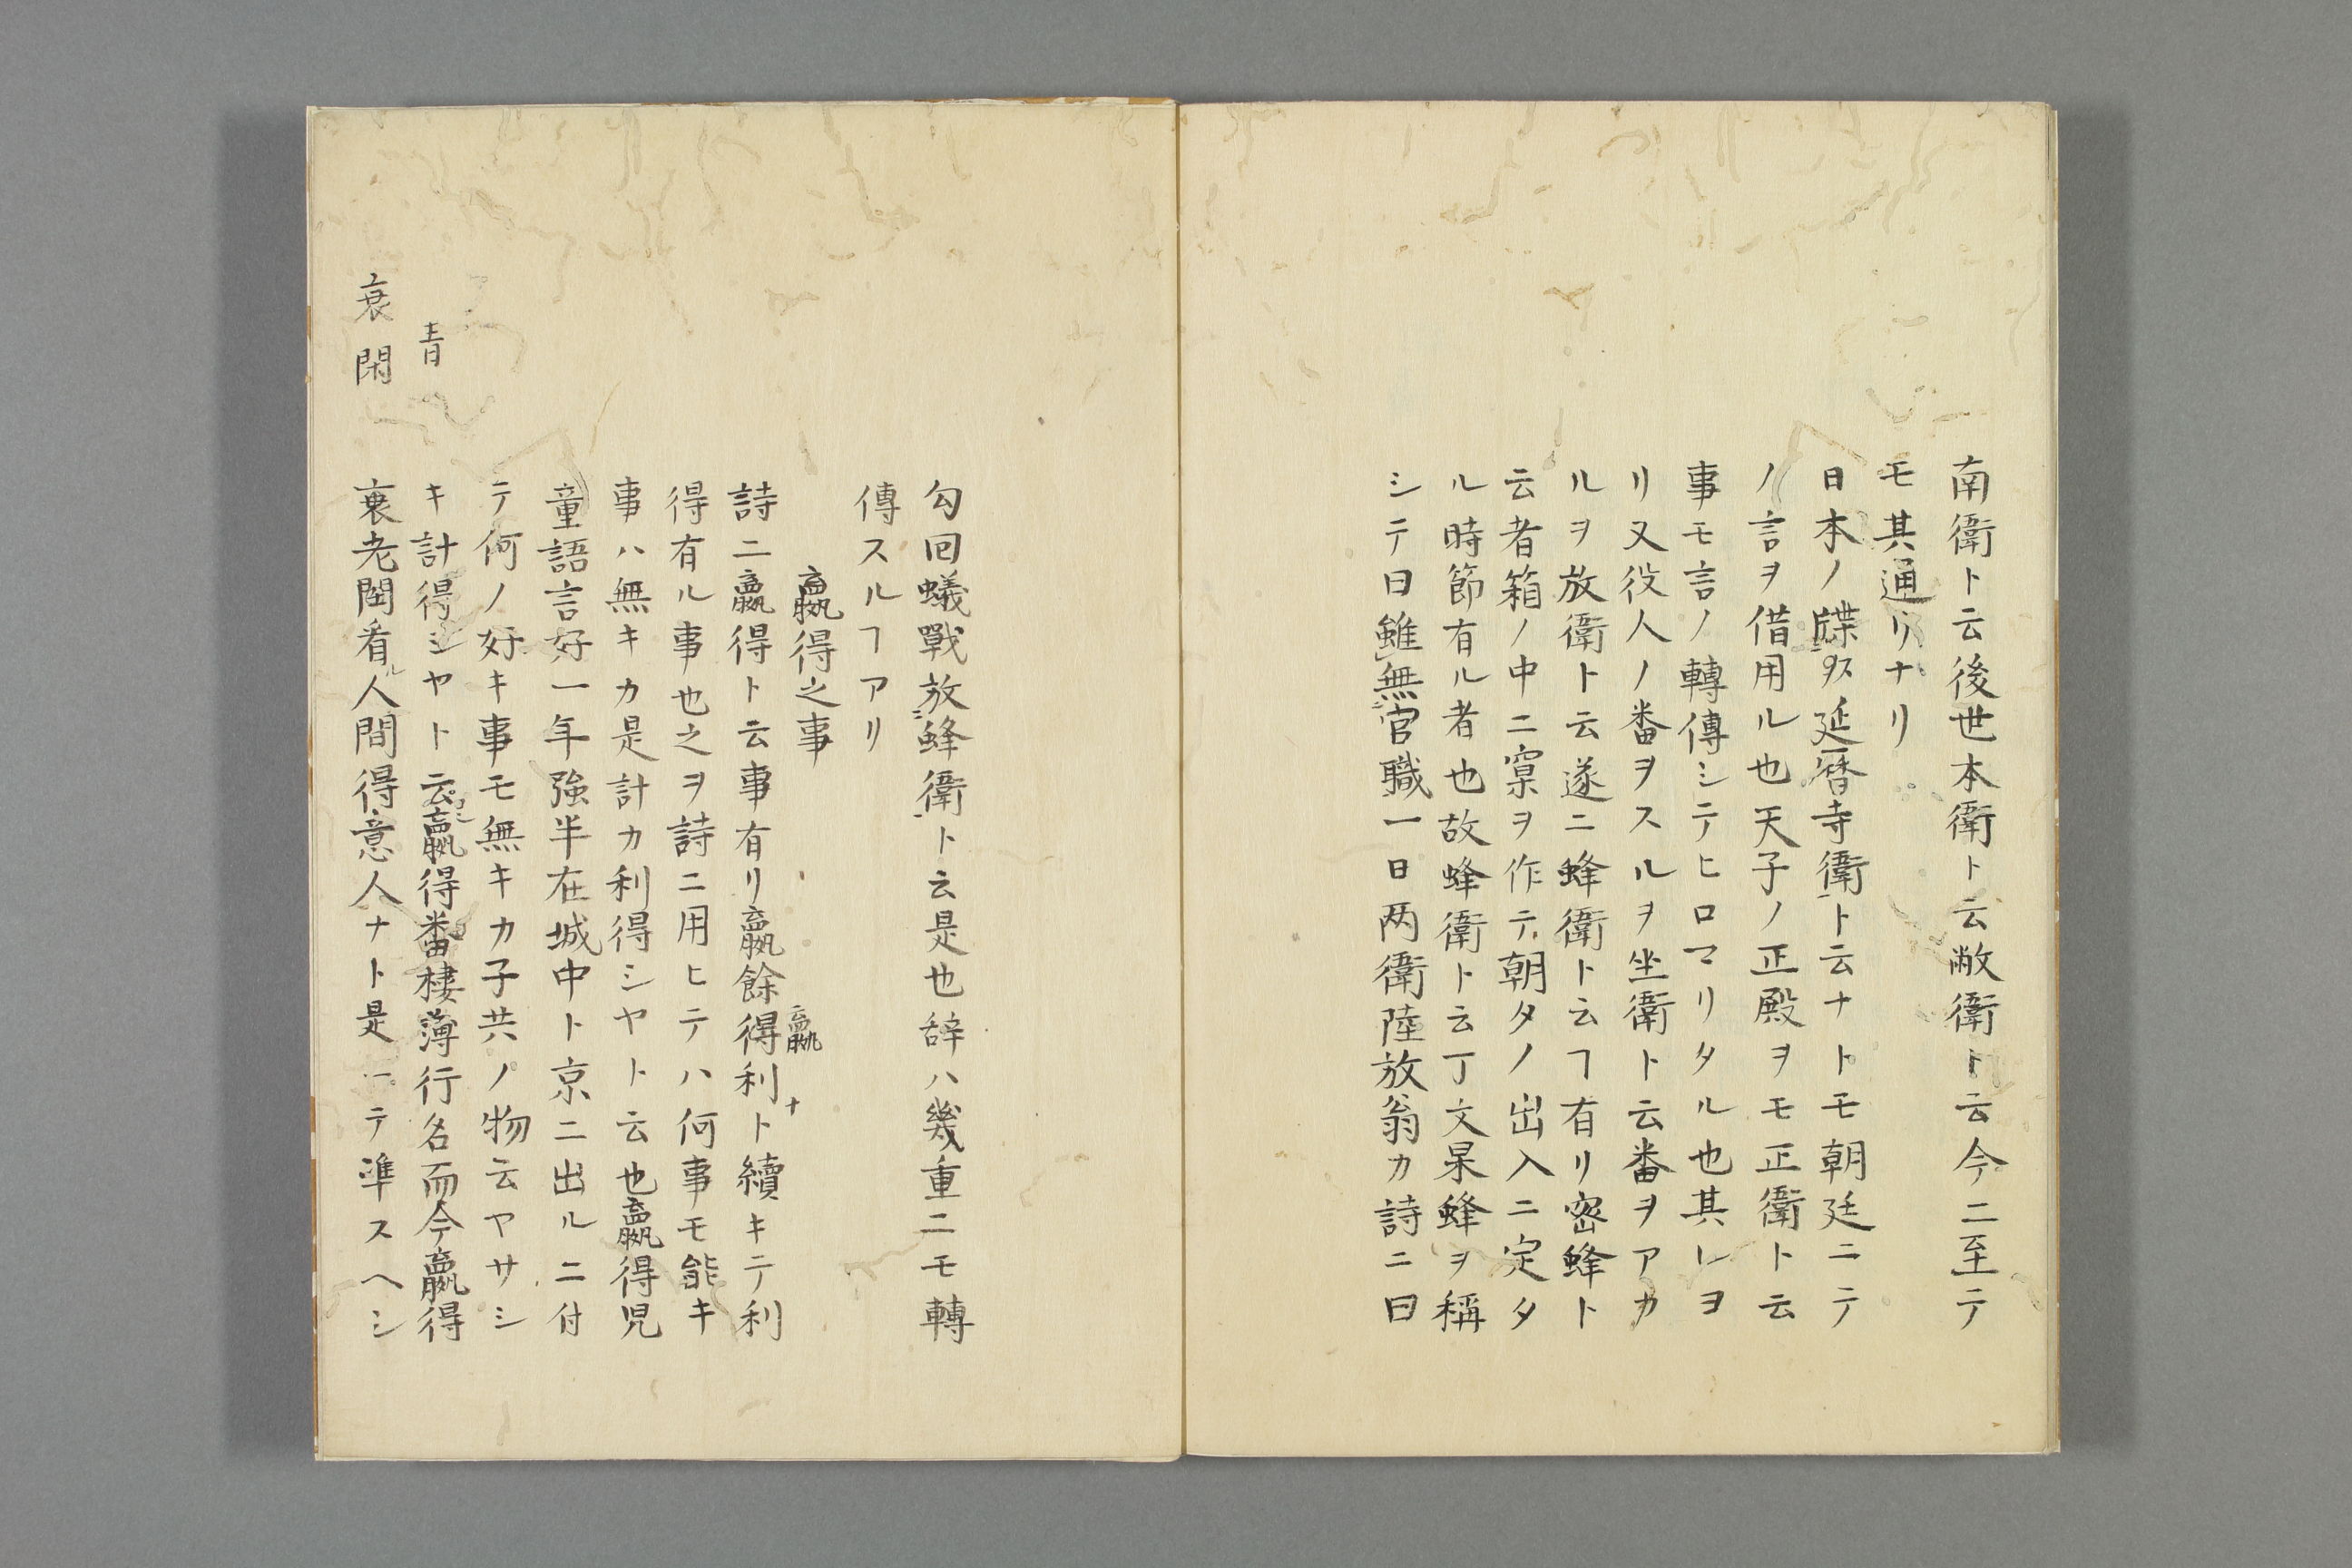 南衛ト云後世本衛ト云敝衛ト云今ニ至テ
モ其通リナリ
日本ノ牒ヲス延暦寺衛ト云ナトモ朝廷ニテ
ノ言ヲ借用ル也天子ノ正殿ヲモ正衛ト云
事モ言ノ轉傳シテヒロマリタル也其レヨ
リ又役人ノ番ヲスルヲ坐衛ト云番ヲアカ
ルヲ放衛ト云遂ニ蜂衛ト云ヿ有リ密蜂ト
云者箱ノ中ニ窠ヲ作テ朝タノ出入ニ定タ
ル時節有ル者也故蜂衛ト云丁文杲蜂ヲ稱
シテ曰雖無官職一日两衛陸放翁カ詩ニ曰
勾回蟻戰放蜂衛ト云是也辞ハ幾重ニモ轉
傳スルヿアリ
贏得之事
詩ニ贏得ト云事有リ贏餘得利ト續キテ利
贏
ナ
得有ル事也之ヲ詩ニ用ヒテハ何事モ能キ
事ハ無キカ是計カ利得シヤト云也贏得児
童語言好一年強半在城中ト京ニ出ルニ付
テ何ノ好キ事モ無キカ子共ノ物云ヤサシ
キ計得シヤト云贏得番棲薄行名而今贏得
青
衰老閏看ル人間得意人ナト是ーテ準スヘシ
衰閑